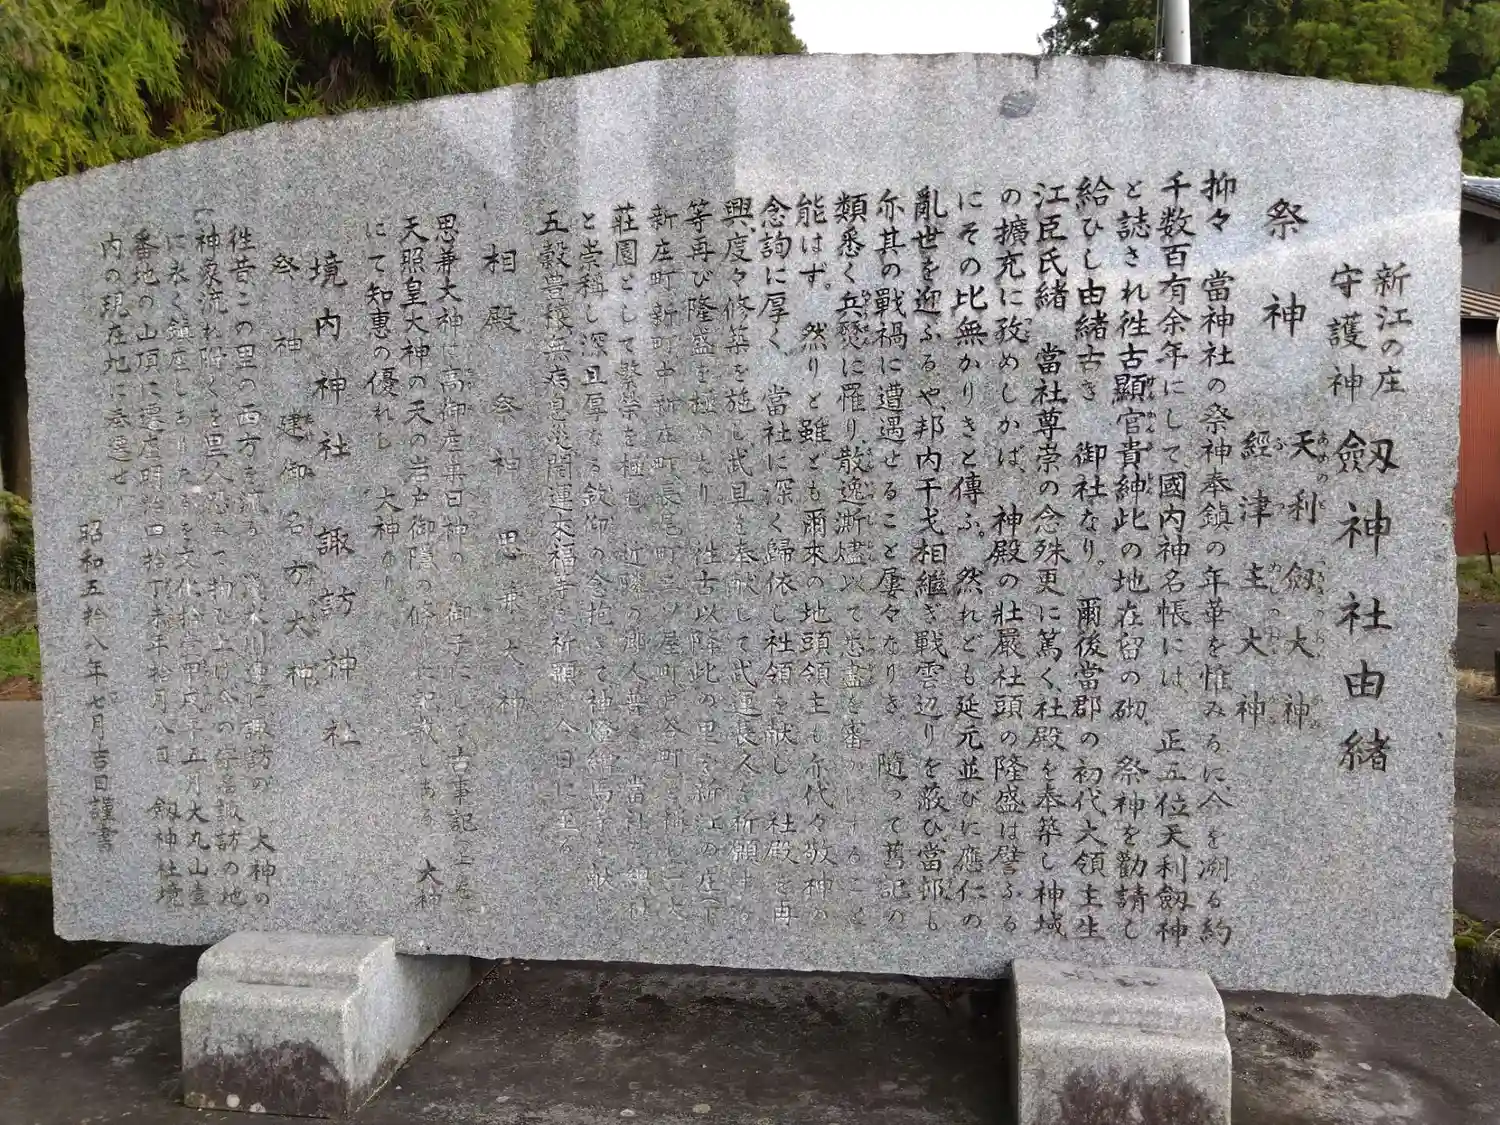 新江の庄
守護神
劔神社由緒
祭神
天利劔大神
あめのとつるぎのおおかみ
經津主大神
ふつぬしのおおかみ
抑々 當神社の祭神奉鎮の年華を惟みるに、今を溯る約
千数百有余年にして、國内神名帳には、正五位天利劔神
と誌され往古顯官貴紳此の地在留の砌、祭神を勸請し
給ひし由緒古き 御社なり。爾後當郡の初代大領主生
江臣氏緒 當社尊崇の念殊更に篤く、社殿を奉築し神域
の擴充に孜めしかば、神殿の壯嚴社頭の隆盛は譬ふる
にその比無かりきと傳ふ。然れども延元並びに應仁の
亂世を迎ふるや、邦内干戈相繼ぎ戦雲辺りを蔽ひ、當郷も
亦其の戰禍に遭遇せること屢々なりき、隨って舊記の
類悉く兵燹に罹り、散逸澌燼以て悉盡を審かにすること
能はず。然りと雖ども爾來の地頭領主も亦代々敬神の
念詢に厚く 當社に深く歸依し社領を献し 社殿を再
興、度々修築を施し武具を奉献して武運長久を祈願する
等再び隆盛を極めたり、往古以降此の里を新江の庄(下
新庄町 新町 中新庄町 長邑町 三ツ屋町
莊園として繁榮を極む 近隣の郷人普く 當社を總社
と崇稱し深且厚なる欽仰の念抱いて神燈繪馬等を献じ
五穀豊穣無病息災開運來福等を祈願し今日に至る
相殿祭神 思兼大神
思兼大神は高御産巣日神の 御子にして古事記上巻に
天照皇大神の天の岩戸御隱の條 に記載しある 大神
にて知惠の優れし 大神なり
境内神社 諏訪神社
祭神 建御名方大神
往昔この里の西方を流る 川邊に諏訪の 大神の
神象流れ附くを里人恐みて拘ひ上げ今の字名諏訪の地
に永く鎮座しありたるを文化拾壹甲戌年五月大丸山壹
番地の山頂に遷座明治四拾丁未年拾月八日 劔神社境
内の現在地に奉遷せり
昭和五拾八年七月吉日謹書